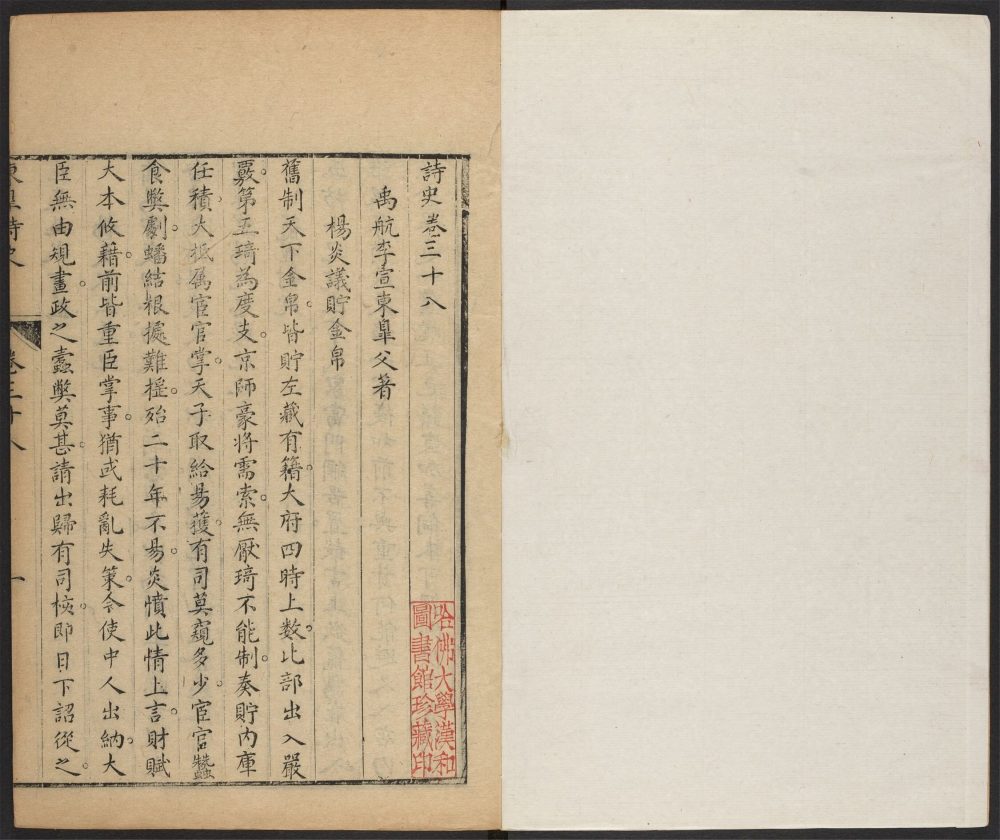 詩史卷三十八
禹航李宣東臯父著
楊炎議貯金帛
舊制天下金帛。皆貯左藏有籍。大府四時上數。比部出入嚴
覈。第五琦為度支。京師豪將需索。無厭琦不能制。奏貯內庫
任積。大抵屬宦官掌。天子取給易獲。有司莫窺多少。宦官蠶
食獘劇。蟠結根據難㨱。殆二十年不易。炎憤此情上言。財賦
大本攸藉。前皆重臣掌事。猶或耗亂失策。今使中人出納。大
臣無由規畫。政之蠹獘莫甚。請出歸有司核。即日下詔從之。
東臯詩史
卷三十八
一
哈佛大學漢和
圖書館珍藏印